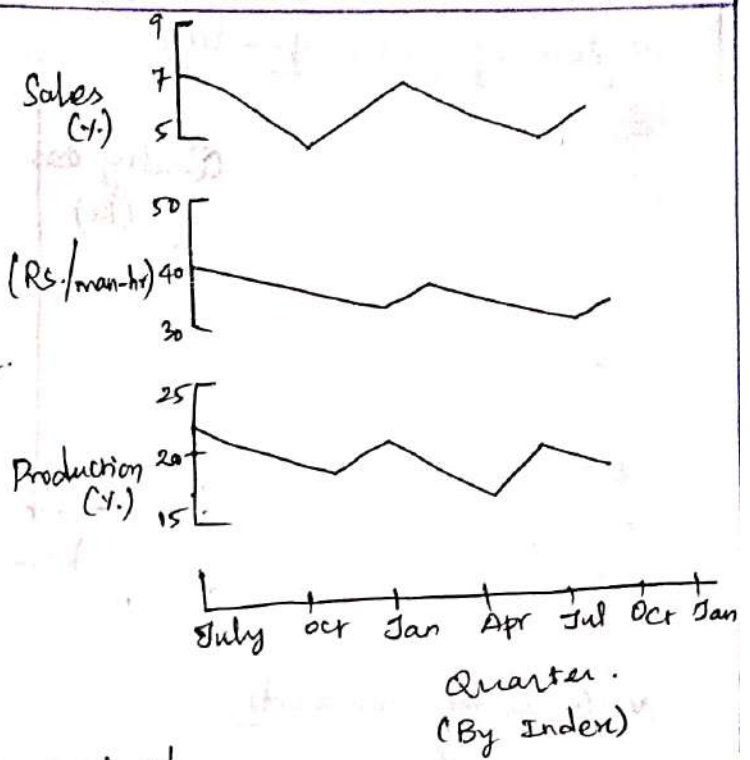 9
Sales 7
(%) 5
50
(Rs./man-hr) 40
30
25
Production 20
(%) 15
July Oct Jan Apr Jul Oct Jan
Quarter.
(By Index)